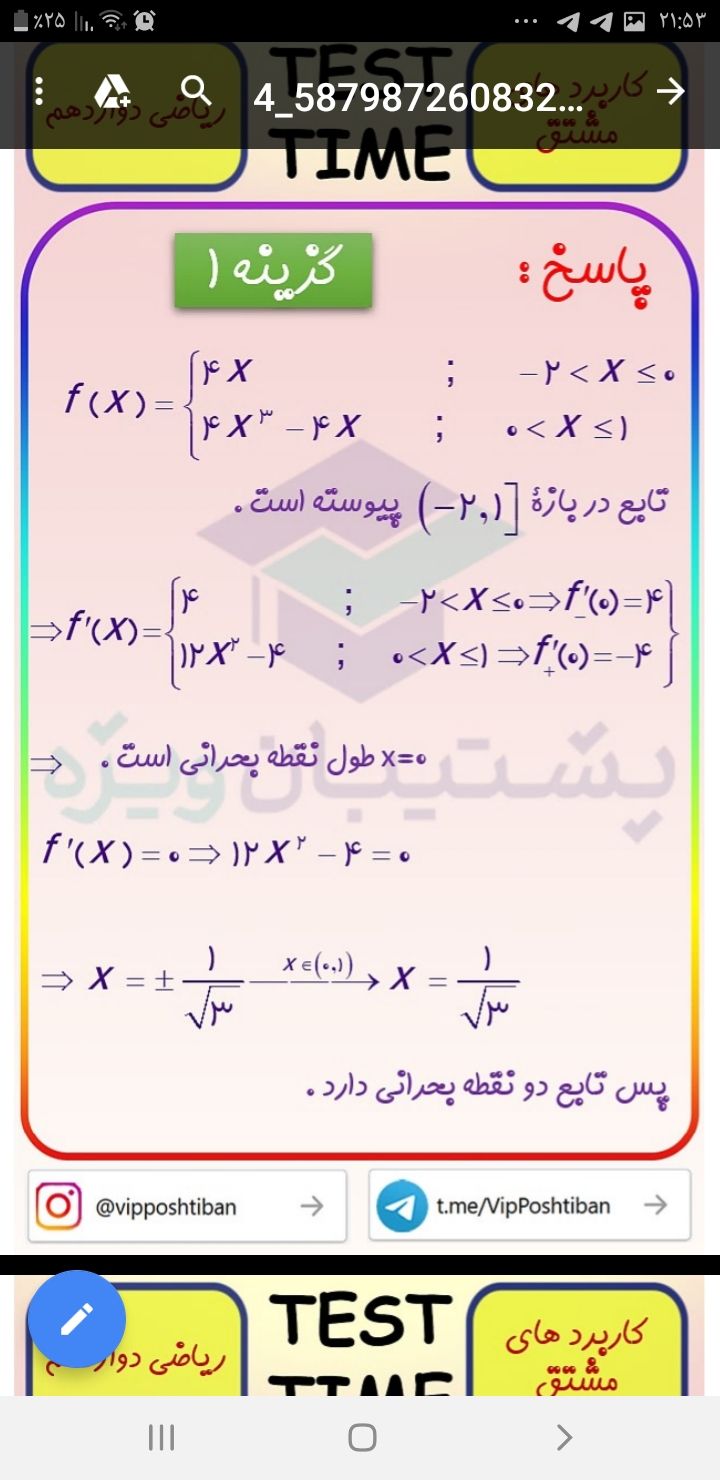 ٪۲۵ ۲۱:۵۳
4_587987260832...
ریاضی دوازدهم TEST TIME کاربرد های مشتق
پاسخ : گزینه ۱
f(X) = { ۴X ; −۲ < X ≤ ۰
۴X³ − ۴X ; ۰ < X ≤ ۱
تابع در بازهٔ (−۲,۱] پیوسته است .
⇒ f'(X) = { ۴ ; −۲ < X ≤ ۰ ⇒ f'₋(۰) = ۴ }
۱۲X² − ۴ ; ۰ < X ≤ ۱ ⇒ f'₊(۰) = −۴
⇒ x=۰ طول نقطه بحرانی است .
پشتیبان ویژه
f'(X) = ۰ ⇒ ۱۲X² − ۴ = ۰
⇒ X = ± ۱/√۳ —X∈(۰,۱)→ X = ۱/√۳
پس تابع دو نقطه بحرانی دارد .
@vipposhtiban → t.me/VipPoshtiban →
ریاضی دوازدهم TEST TIME کاربرد های مشتق